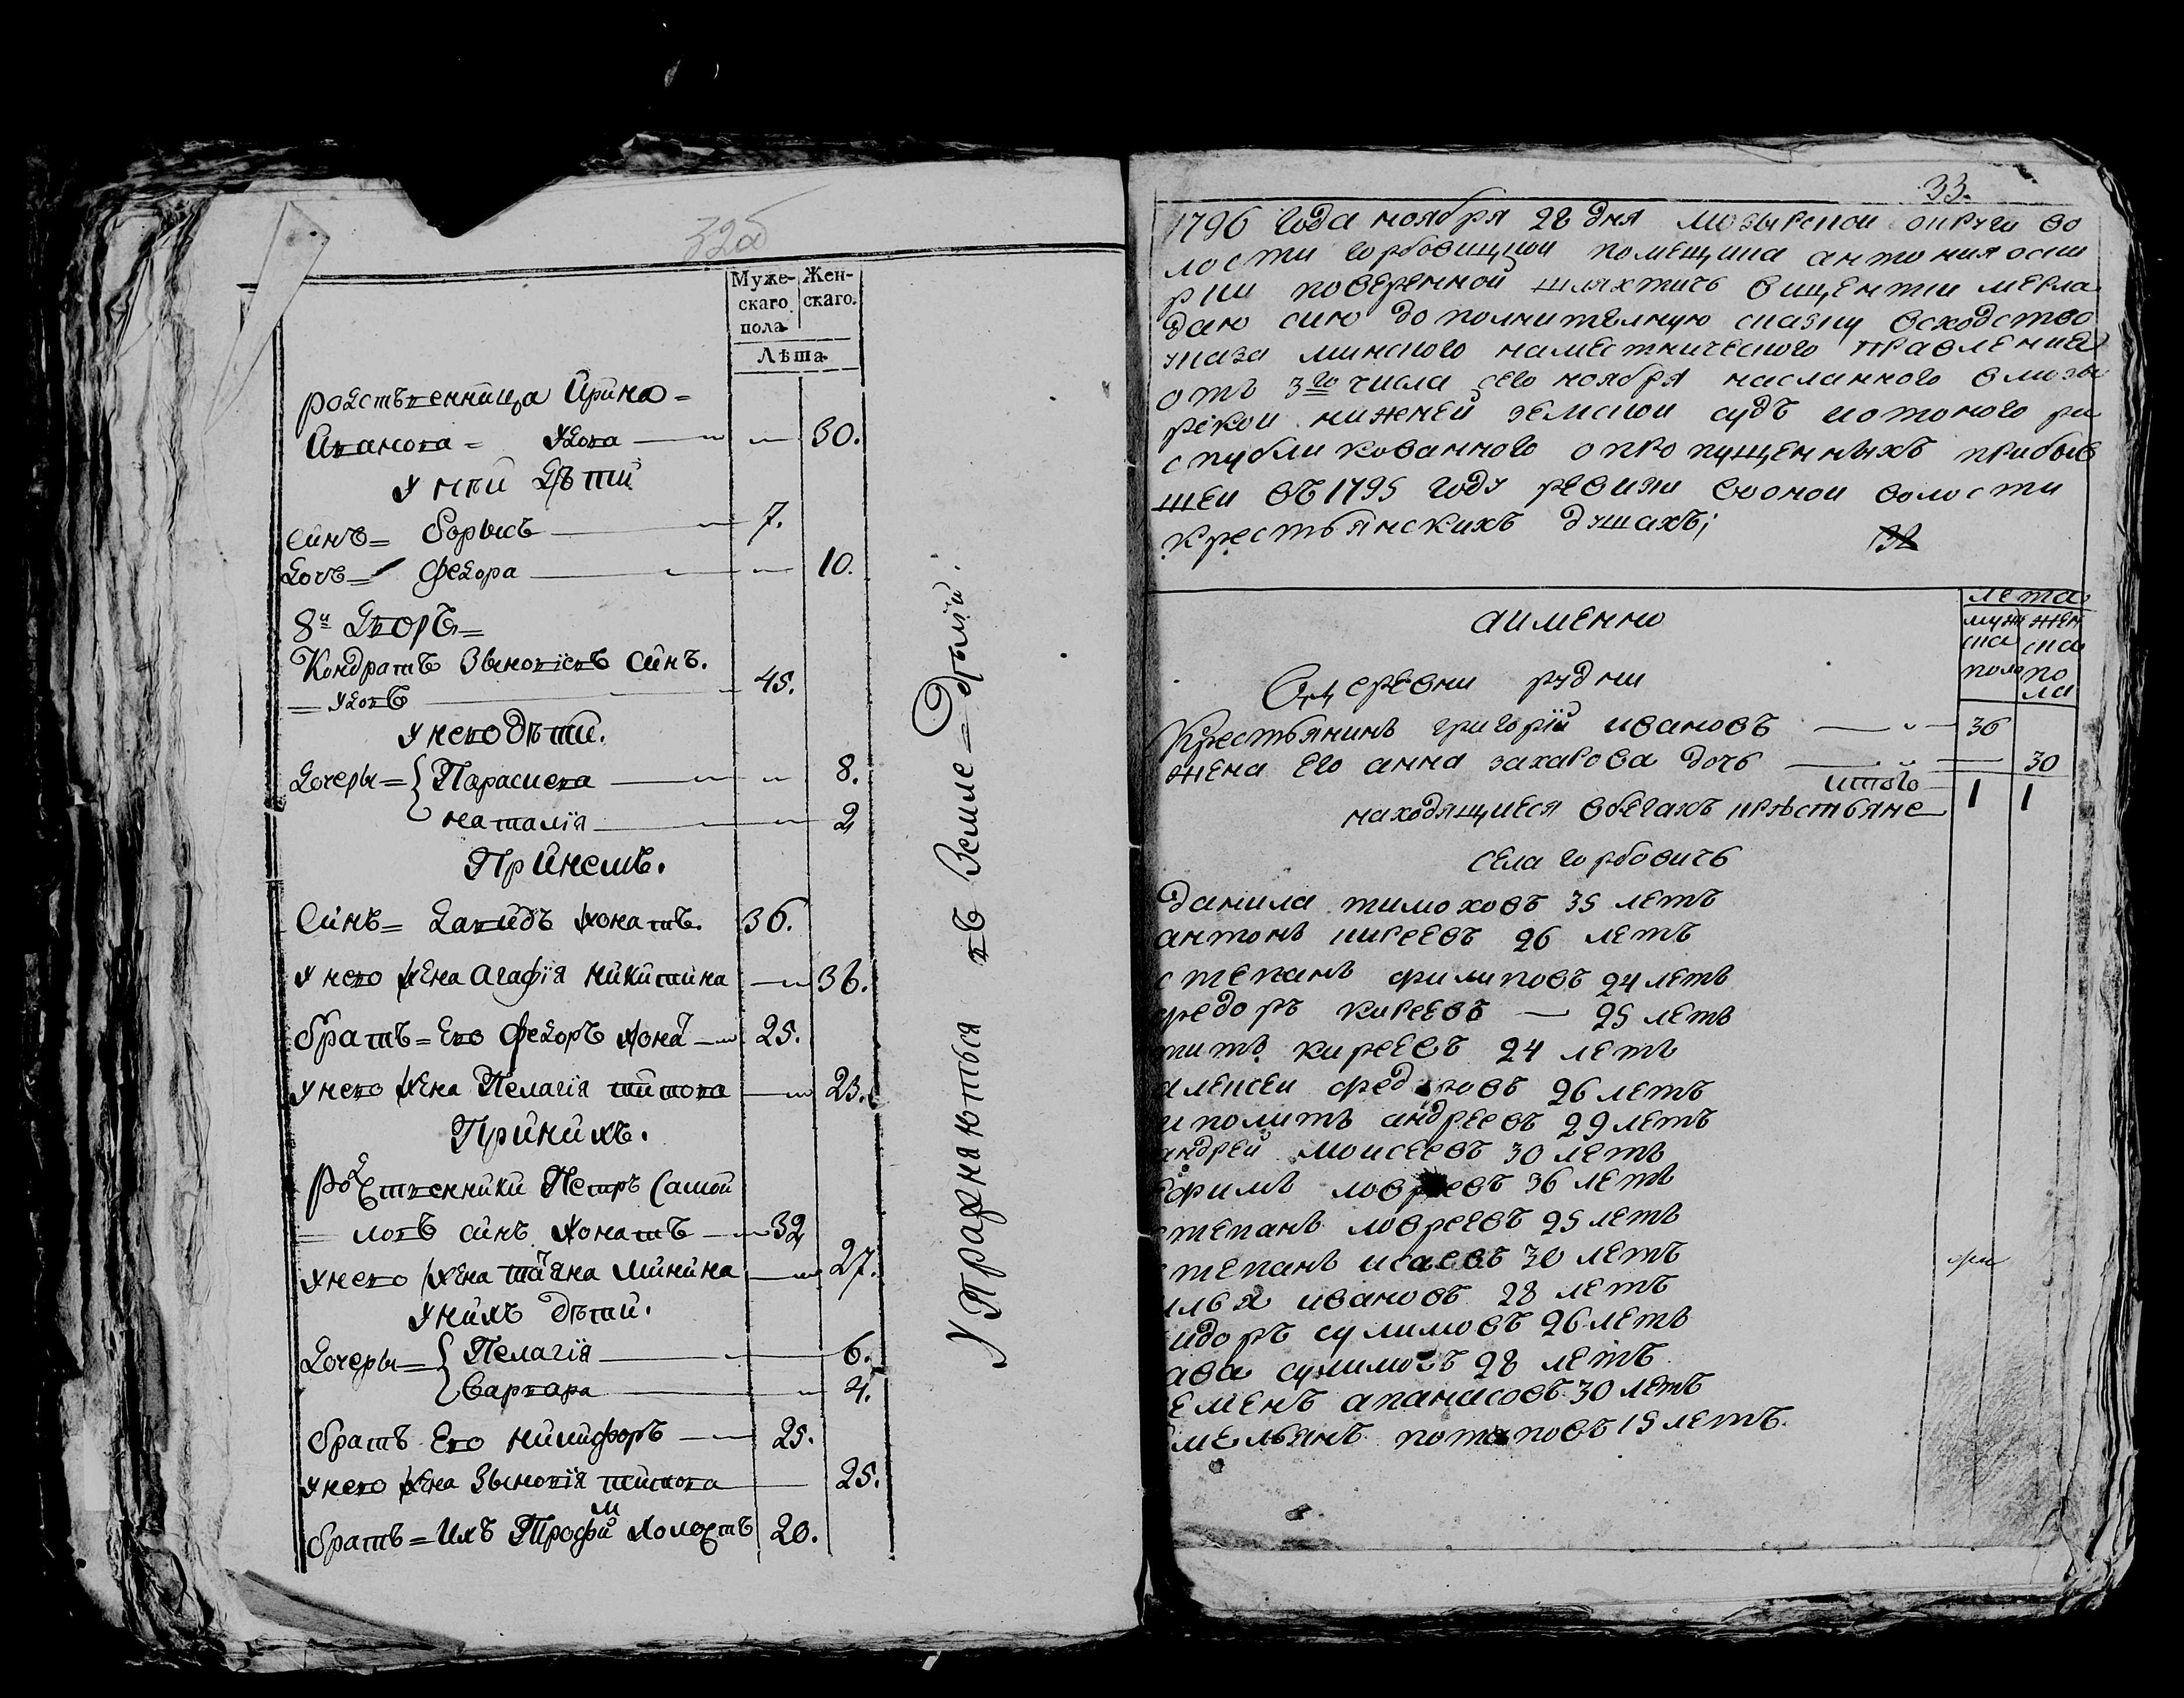 32об
Муже-
скаго
пола
Жен-
скаго.
Лѣта
родственница Ирина
Иванова = вдова — 30.
у неи дѣти
синъ = борисъ — 7.
дочь = федора — 10.
8й дворъ =
Кондратъ Зѣновіевъ синъ.
= вдовъ — 45.
у него дѣти.
дочеры = Парасцева — 8.
наталія — 2
При немъ.
Синъ = давидъ жонатъ. 36.
у него жена агафія никитина — 36.
братъ = его федоръ жонат — 25.
у него жена Пелагія титова — 23.
При нихъ.
родственники Петръ Самой
= ловъ синъ жонатъ — 32
у него жена татяна минина — 27.
у нихъ дѣти.
дочеры = Пелагія — 6.
варвара — 4.
братъ его никифоръ — 25.
у него жена Зѣновія титова — 25.
братъ = ихъ Трофим холостъ 20.
Упражняються въ Землѣ =
33.
1796 года ноября 28 дня мозырской округи во
лости горбовицкой помещика антония оски
рки поверенной шляхтичъ вицентий
даю сию дополнителную сказку всходство
указа минского наместнического правления
отъ 3го числа сего ноября насланного в мозы
рской нижней земской судъ и отоного
спубликованного о пропущенныхъ прибыв
шей въ 1795 году ревизи вооной волости
крестьянскихъ душахъ;
32
лета
муж
ска
пола
жен
ска
по
ла
а именно
деревни рудни
Крестьянинъ григорій ивановъ — 36
жена его анна захарова дочь — 30
итого 1 1
находящиеся вбегахъ крестьяне
села горбовичъ
данила тимоховъ 35 летъ
антонъ киреевъ 26 летъ
степанъ филиповъ 24 летъ
федоръ киреевъ — 25 летъ
титъ киреевъ 24 летъ
алексеи федоровъ 26 летъ
иполитъ андреевъ 29 летъ
андрей моисеевъ 30 летъ
ефимъ лавреевъ 36 летъ
степанъ лавреевъ 25 летъ
степанъ исаевъ 30 летъ
илья ивановъ 28 летъ
идоръ сулимовъ 26 летъ
сава сулимовъ 28 летъ
семенъ апанасовъ 30 летъ
емельянъ потаповъ 15 летъ